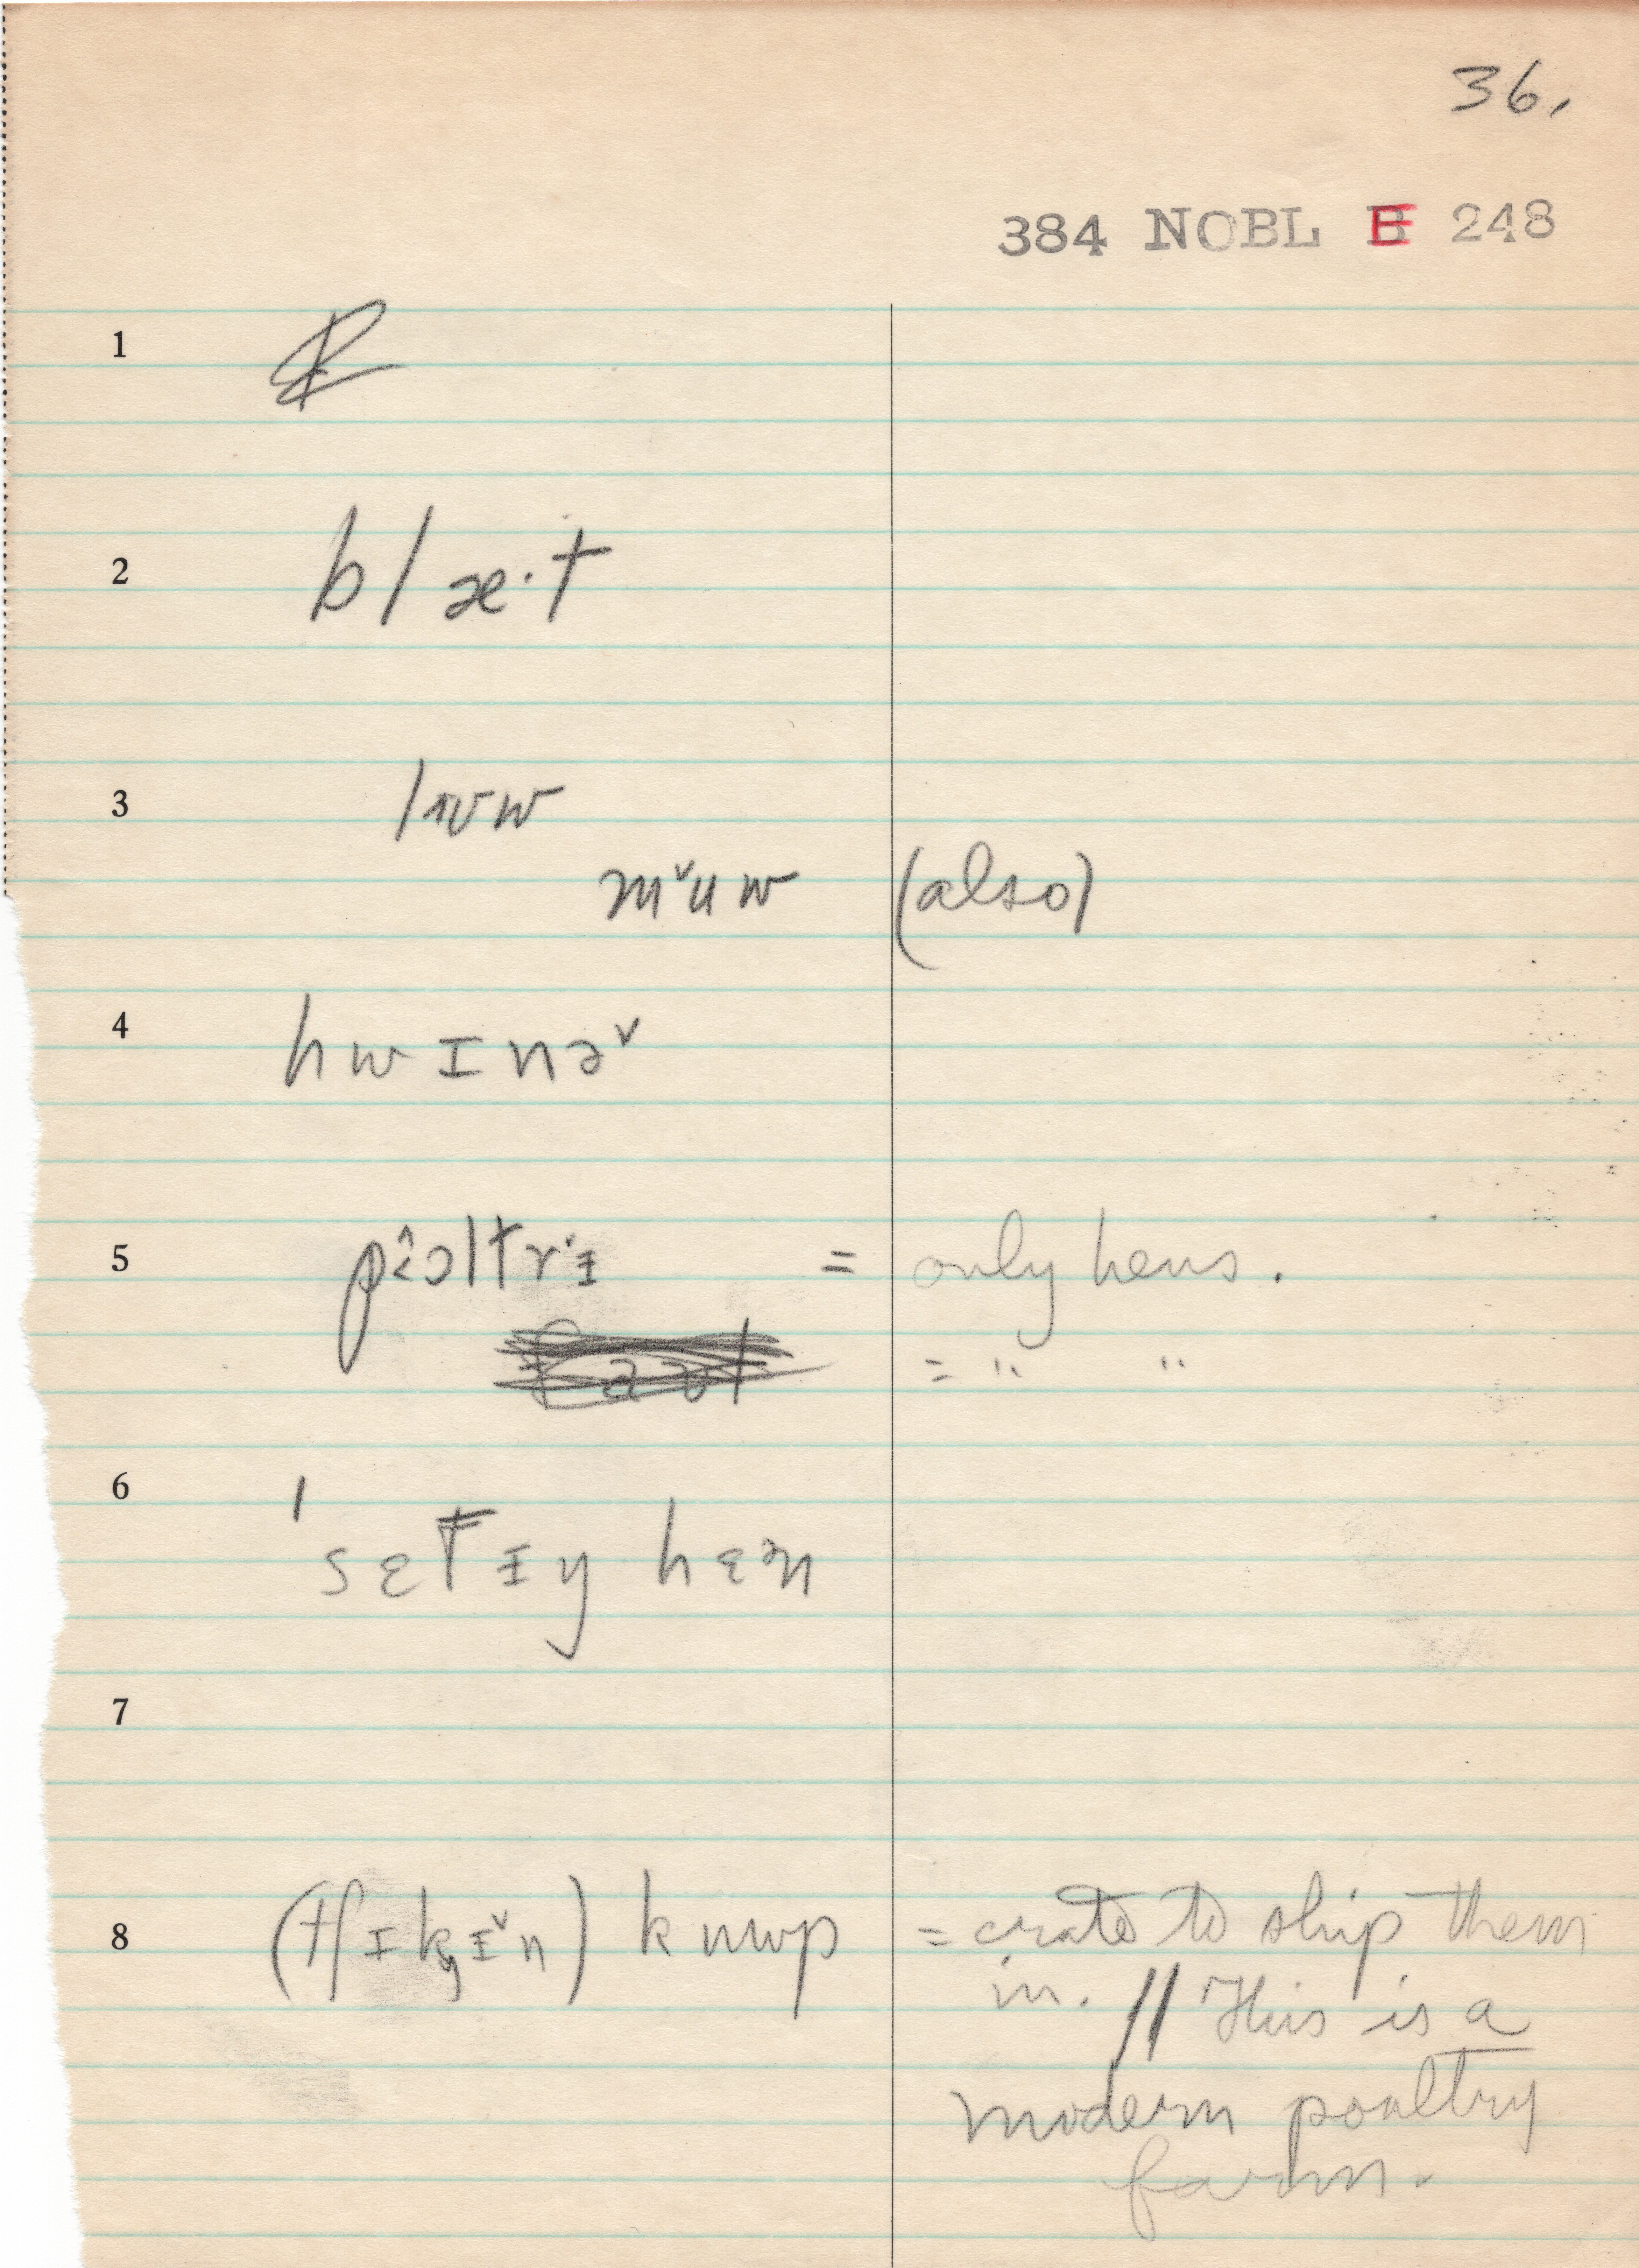 36.
384 NOBL E 248
1
2 blæ·t
3 lɪʊw
mˇuw (also)
4 hwɪnəˇ
5 pˆɔltrˑɪ = only hens.
= " "
6 ˈsɛtɪy hɛᵊn
7
8 (tʃɪkɪˇn) kuwp = crate to ship them
in. // This is a
modern poultry
farm.